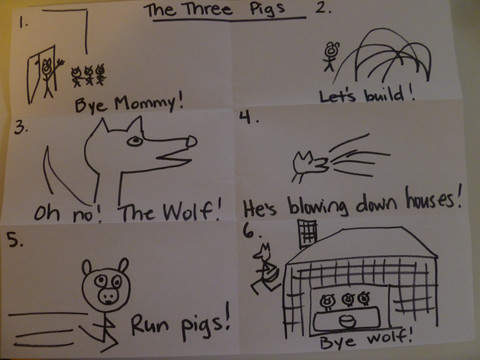 The Three Pigs
1.
Bye Mommy!
2.
Let's build!
3.
Oh no! The Wolf!
4.
He's blowing down houses!
5.
Run pigs!
6.
Bye wolf!